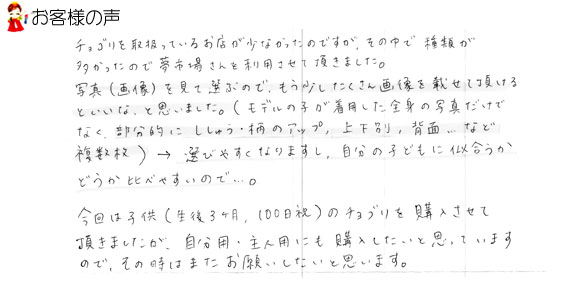 お客様の声
チョゴリを取扱っているお店が少なかったのですが、その中で種類が
多かったので夢市場さんを利用させて頂きました。
写真(画像)を見て選ぶので、もう少したくさん画像を載せて頂ける
といいな、と思いました。(モデルの子が着用した全身の写真だけで
なく、部分的にししゅう・柄のアップ、上下別り、背面…など
複数枚)→選びやすくなりますし、自分の子どもに似合うか
どうか比べやすいので…。
今回は子供(生後3ヶ月、100日祝)のチョゴリを購入させて
頂きましたが、自分用・主人用にも購入したいと思っています
ので、その時はまたお願いしたいと思います。